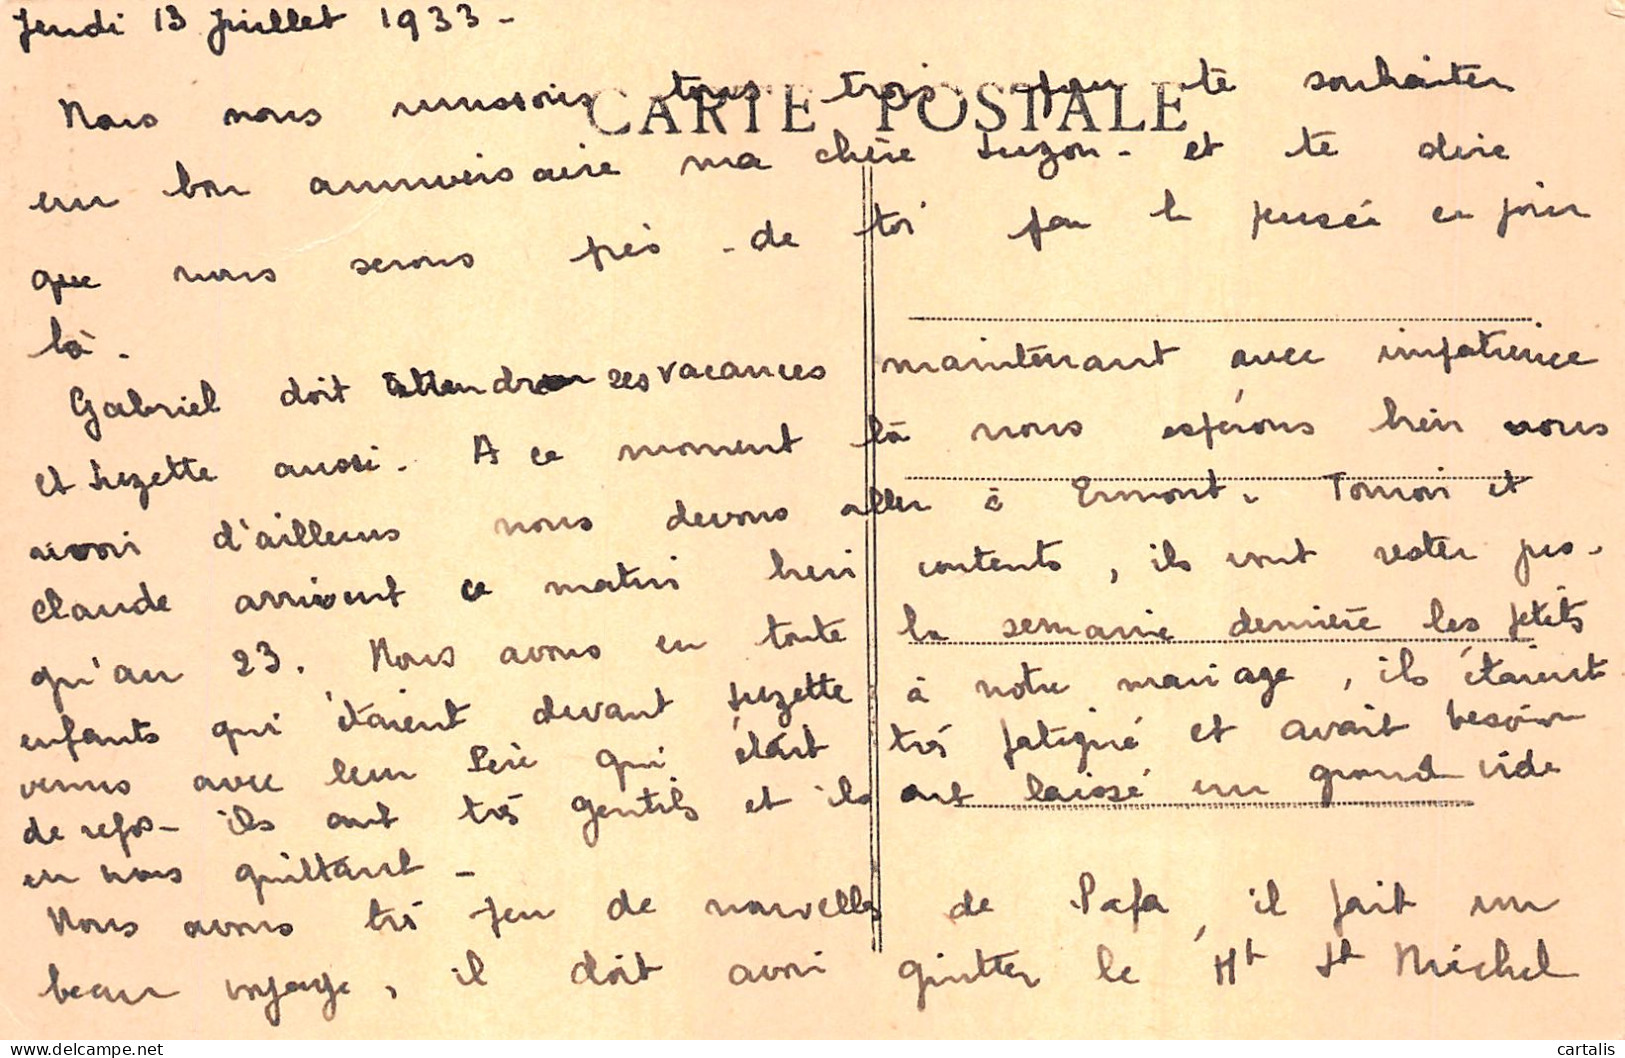 Jeudi 13 Juillet 1933 -
CARTE POSTALE
Nous nous réunissons tous trois pour te souhaiter
un bon anniversaire ma chère Suzon - et te dire
que nous serons près - de toi par la pensée ce jour
là.
Gabriel doit attendre ses vacances maintenant avec impatience
et Suzette aussi. A ce moment là nous espérons bien vous
avoir d'ailleurs nous devons aller à Ermont. Tonton et
Claude arrivent ce matin bien contents, ils vont rester jus-
qu'au 23. Nous avons eu toute la semaine dernière les petits
enfants qui étaient devant Suzette à notre mariage, ils étaient
venus avec leur Père qui était très fatigué et avait besoin
de repos - ils ont très gentils et ils ont laissé un grand vide
en nous quittant -
Nous avons très peu de nouvelles de Papa, il fait un
beau voyage, il doit avoir quitter le Mt St Michel
cartalis
https://www.delcampe.net